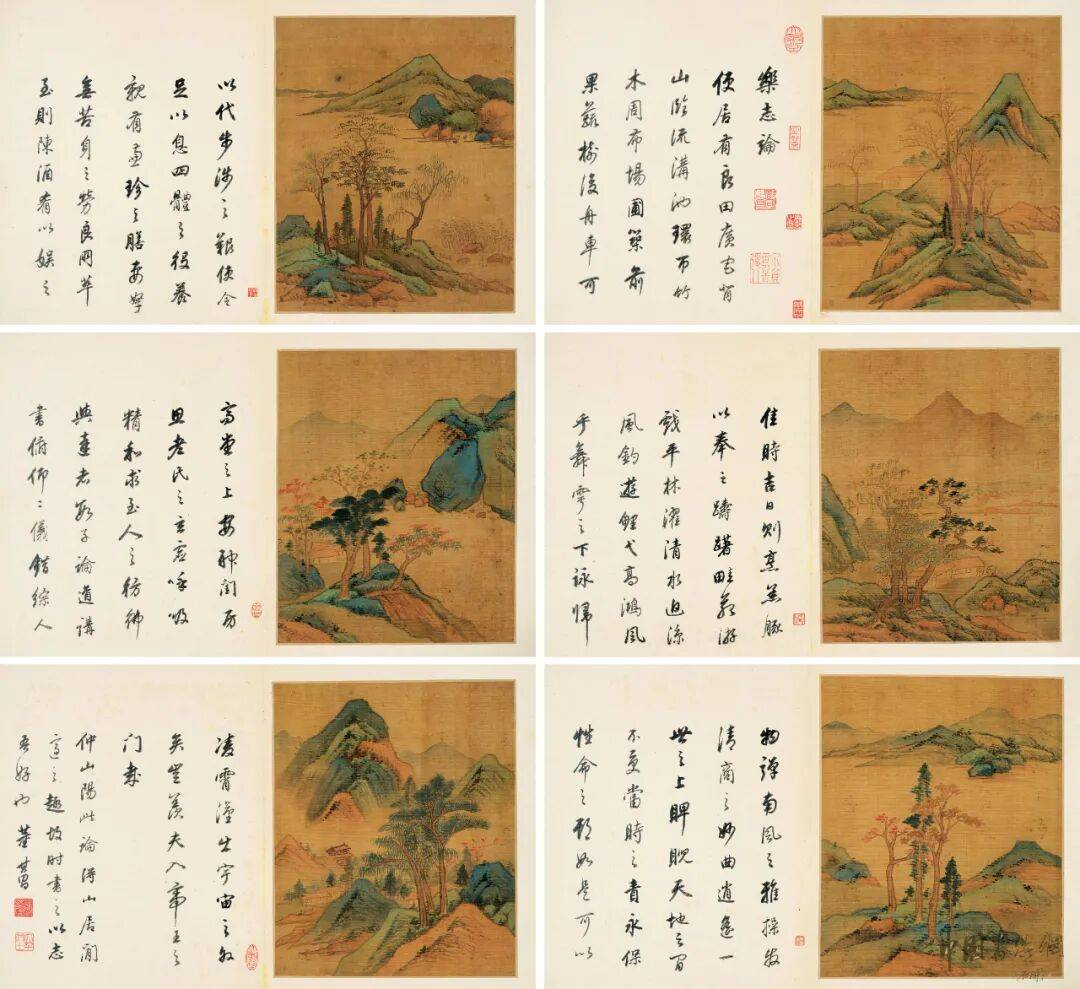 樂志論
使居有良田廣宅背
山臨流溝池環帀竹
木周布場圃築前
果蓏樹後舟車可
以代步涉之艱使令
足以息四體之役養
親有兼珍之膳妻孥
無苦身之勞良朋萃
至則陳酒肴以娛之
佳時吉日則烹羔豚
以奉之躊躇畦苑遊
戲平林濯清水追涼
風釣遊鯉弋高鴻風
乎舞雩之下詠歸
高堂之上安神閨房
思老氏之玄虛呼吸
精和求至人之彷彿
與達者數子論道講
書俯仰二儀錯綜人
物彈南風之雅操發
清商之妙曲逍遙一
世之上睥睨天地之間
不受當時之責永保
性命之期如是可以
凌霄漢出宇宙之外
矣豈羨夫入帝王之
门哉
仲山陽此論得山居閒
適之趣故时書之以志
吾好也 董其昌